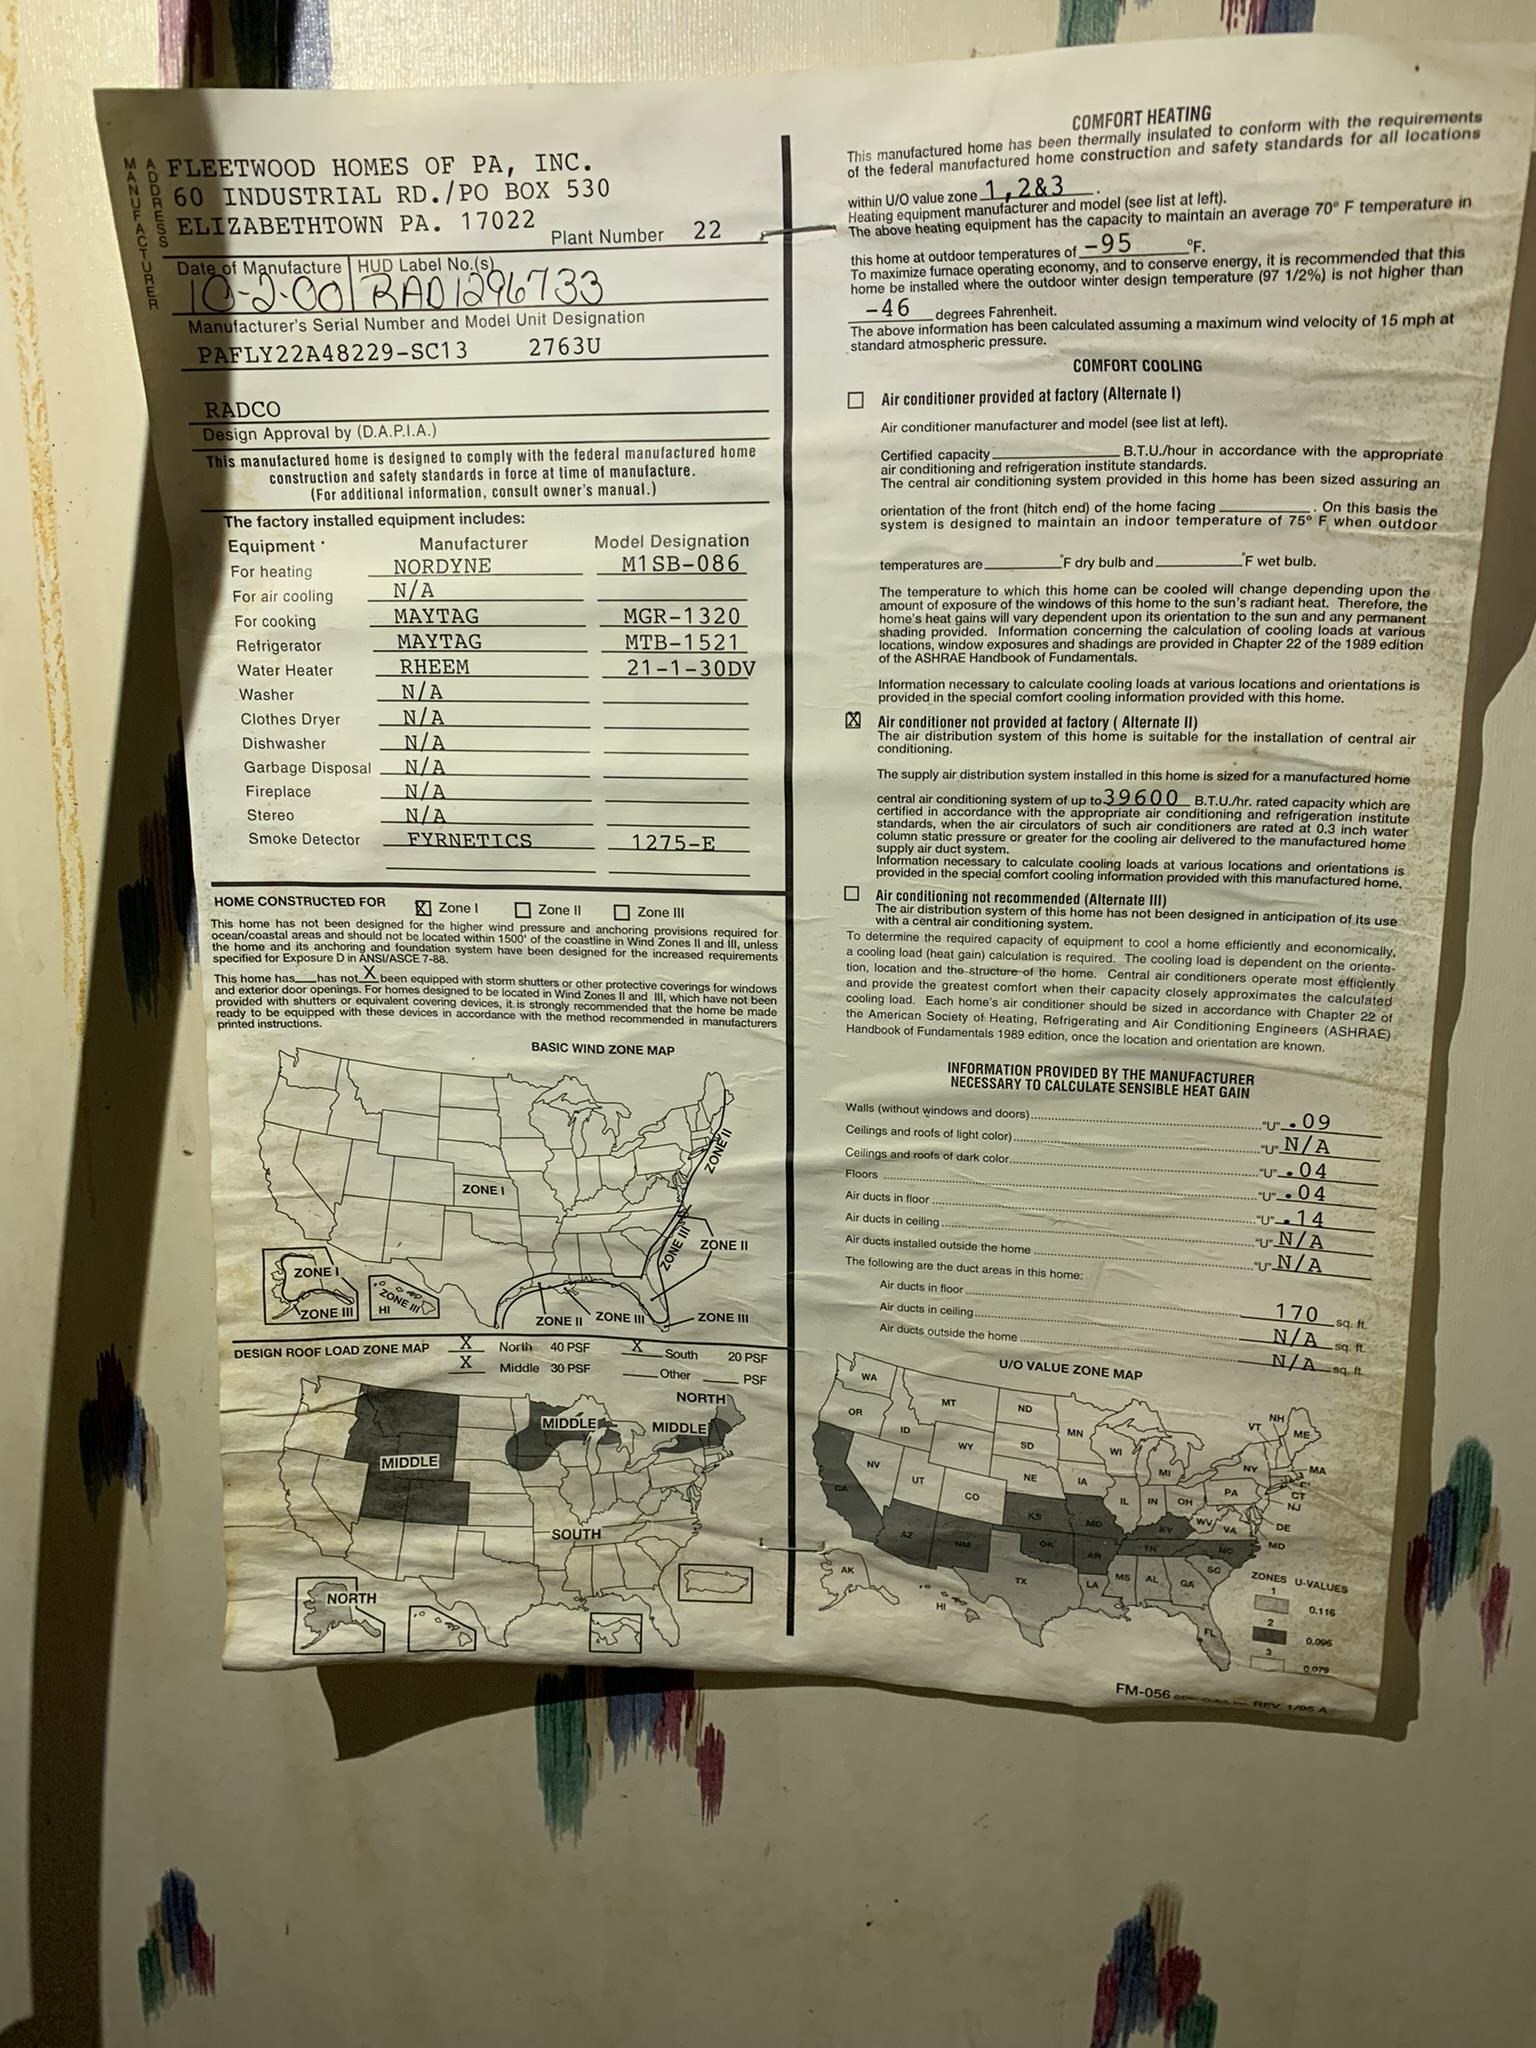 MANUFACTURER
ADDRESS
FLEETWOOD HOMES OF PA, INC.
60 INDUSTRIAL RD./PO BOX 530
ELIZABETHTOWN PA. 17022
Plant Number 22
Date of Manufacture HUD Label No.(s)
10-2-00 RAD1296733
Manufacturer's Serial Number and Model Unit Designation
PAFLY22A48229-SC13 2763U
RADCO
Design Approval by (D.A.P.I.A.)
This manufactured home is designed to comply with the federal manufactured home
construction and safety standards in force at time of manufacture.
(For additional information, consult owner's manual.)
The factory installed equipment includes:
Equipment Manufacturer Model Designation
For heating NORDYNE M1SB-086
For air cooling N/A
For cooking MAYTAG MGR-1320
Refrigerator MAYTAG MTB-1521
Water Heater RHEEM 21-1-30DV
Washer N/A
Clothes Dryer N/A
Dishwasher N/A
Garbage Disposal N/A
Fireplace N/A
Stereo N/A
Smoke Detector FYRNETICS 1275-E
HOME CONSTRUCTED FOR X Zone I Zone II Zone III
This home has not been designed for the higher wind pressure and anchoring provisions required for
ocean/coastal areas and should not be located within 1500' of the coastline in Wind Zones II and III, unless
the home and its anchoring and foundation system have been designed for the increased requirements
specified for Exposure D in ANSI/ASCE 7-88.
This home has___has not X been equipped with storm shutters or other protective coverings for windows
and exterior door openings. For homes designed to be located in Wind Zones II and III, which have not been
provided with shutters or equivalent covering devices, it is strongly recommended that the home be made
ready to be equipped with these devices in accordance with the method recommended in manufacturers
printed instructions.
BASIC WIND ZONE MAP
ZONE II
ZONE I
ZONE III
ZONE II
ZONE I
ZONE III
ZONE III
HI
ZONE II
ZONE III
ZONE III
DESIGN ROOF LOAD ZONE MAP X North 40 PSF X South 20 PSF
X Middle 30 PSF ___Other ___ PSF
NORTH
MIDDLE
MIDDLE
MIDDLE
SOUTH
NORTH
COMFORT HEATING
This manufactured home has been thermally insulated to conform with the requirements
of the federal manufactured home construction and safety standards for all locations
within U/O value zone 1,2&3.
Heating equipment manufacturer and model (see list at left).
The above heating equipment has the capacity to maintain an average 70° F temperature in
this home at outdoor temperatures of -95 °F.
To maximize furnace operating economy, and to conserve energy, it is recommended that this
home be installed where the outdoor winter design temperature (97 1/2%) is not higher than
-46 degrees Fahrenheit.
The above information has been calculated assuming a maximum wind velocity of 15 mph at
standard atmospheric pressure.
COMFORT COOLING
Air conditioner provided at factory (Alternate I)
Air conditioner manufacturer and model (see list at left).
Certified capacity ___ B.T.U./hour in accordance with the appropriate
air conditioning and refrigeration institute standards.
The central air conditioning system provided in this home has been sized assuring an
orientation of the front (hitch end) of the home facing ___. On this basis the
system is designed to maintain an indoor temperature of 75° F when outdoor
temperatures are ___°F dry bulb and ___°F wet bulb.
The temperature to which this home can be cooled will change depending upon the
amount of exposure of the windows of this home to the sun's radiant heat. Therefore, the
home's heat gains will vary dependent upon its orientation to the sun and any permanent
shading provided. Information concerning the calculation of cooling loads at various
locations, window exposures and shadings are provided in Chapter 22 of the 1989 edition
of the ASHRAE Handbook of Fundamentals.
Information necessary to calculate cooling loads at various locations and orientations is
provided in the special comfort cooling information provided with this home.
X Air conditioner not provided at factory ( Alternate II)
The air distribution system of this home is suitable for the installation of central air
conditioning.
The supply air distribution system installed in this home is sized for a manufactured home
central air conditioning system of up to 39600 B.T.U./hr. rated capacity which are
certified in accordance with the appropriate air conditioning and refrigeration institute
standards, when the air circulators of such air conditioners are rated at 0.3 inch water
column static pressure or greater for the cooling air delivered to the manufactured home
supply air duct system.
Information necessary to calculate cooling loads at various locations and orientations is
provided in the special comfort cooling information provided with this manufactured home.
Air conditioning not recommended (Alternate III)
The air distribution system of this home has not been designed in anticipation of its use
with a central air conditioning system.
To determine the required capacity of equipment to cool a home efficiently and economically,
a cooling load (heat gain) calculation is required. The cooling load is dependent on the orienta-
tion, location and the structure of the home. Central air conditioners operate most efficiently
and provide the greatest comfort when their capacity closely approximates the calculated
cooling load. Each home's air conditioner should be sized in accordance with Chapter 22 of
the American Society of Heating, Refrigerating and Air Conditioning Engineers (ASHRAE)
Handbook of Fundamentals 1989 edition, once the location and orientation are known.
INFORMATION PROVIDED BY THE MANUFACTURER
NECESSARY TO CALCULATE SENSIBLE HEAT GAIN
Walls (without windows and doors) "U" .09
Ceilings and roofs of light color) "U" N/A
Ceilings and roofs of dark color "U" .04
Floors "U" .04
Air ducts in floor "U" .14
Air ducts in ceiling "U" N/A
Air ducts installed outside the home "U" N/A
The following are the duct areas in this home:
Air ducts in floor 170 sq. ft.
Air ducts in ceiling N/A sq. ft.
Air ducts outside the home N/A sq. ft.
U/O VALUE ZONE MAP
WA MT ND MN VT NH ME
OR ID WY SD WI MI NY MA
NV UT CO NE IA IL IN OH PA CT NJ
CA KS MO KY WV VA DE MD
AZ NM OK AR TN NC
AK HI TX LA MS AL GA SC FL
ZONES U-VALUES
1 0.116
2 0.096
3 0.079
FM-056 REV. 1/95 A